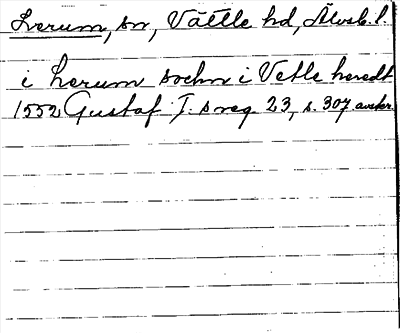 Lerum, sn, Vättle hd, Älvsb. l.
i Lerum sochn i Vetle heredt
1552 Gustaf I:s reg. 23, s. 307 avskr.